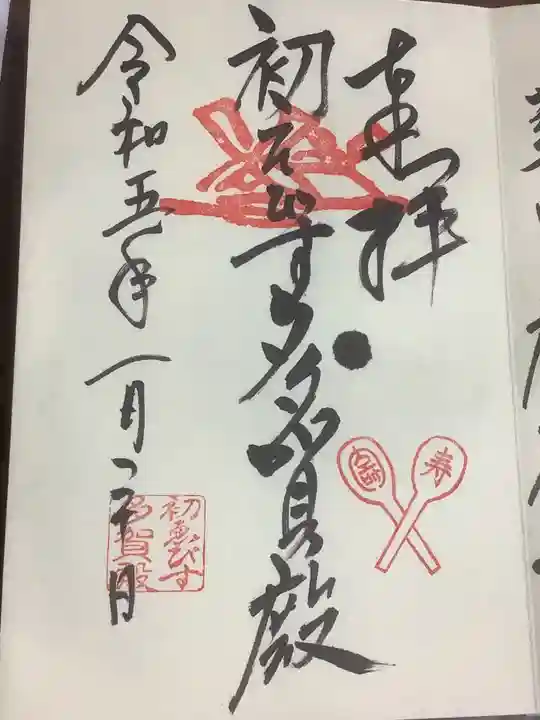 奉拝
初えびす多賀殿
令和五年一月
寿
初ゑびす
多賀殿